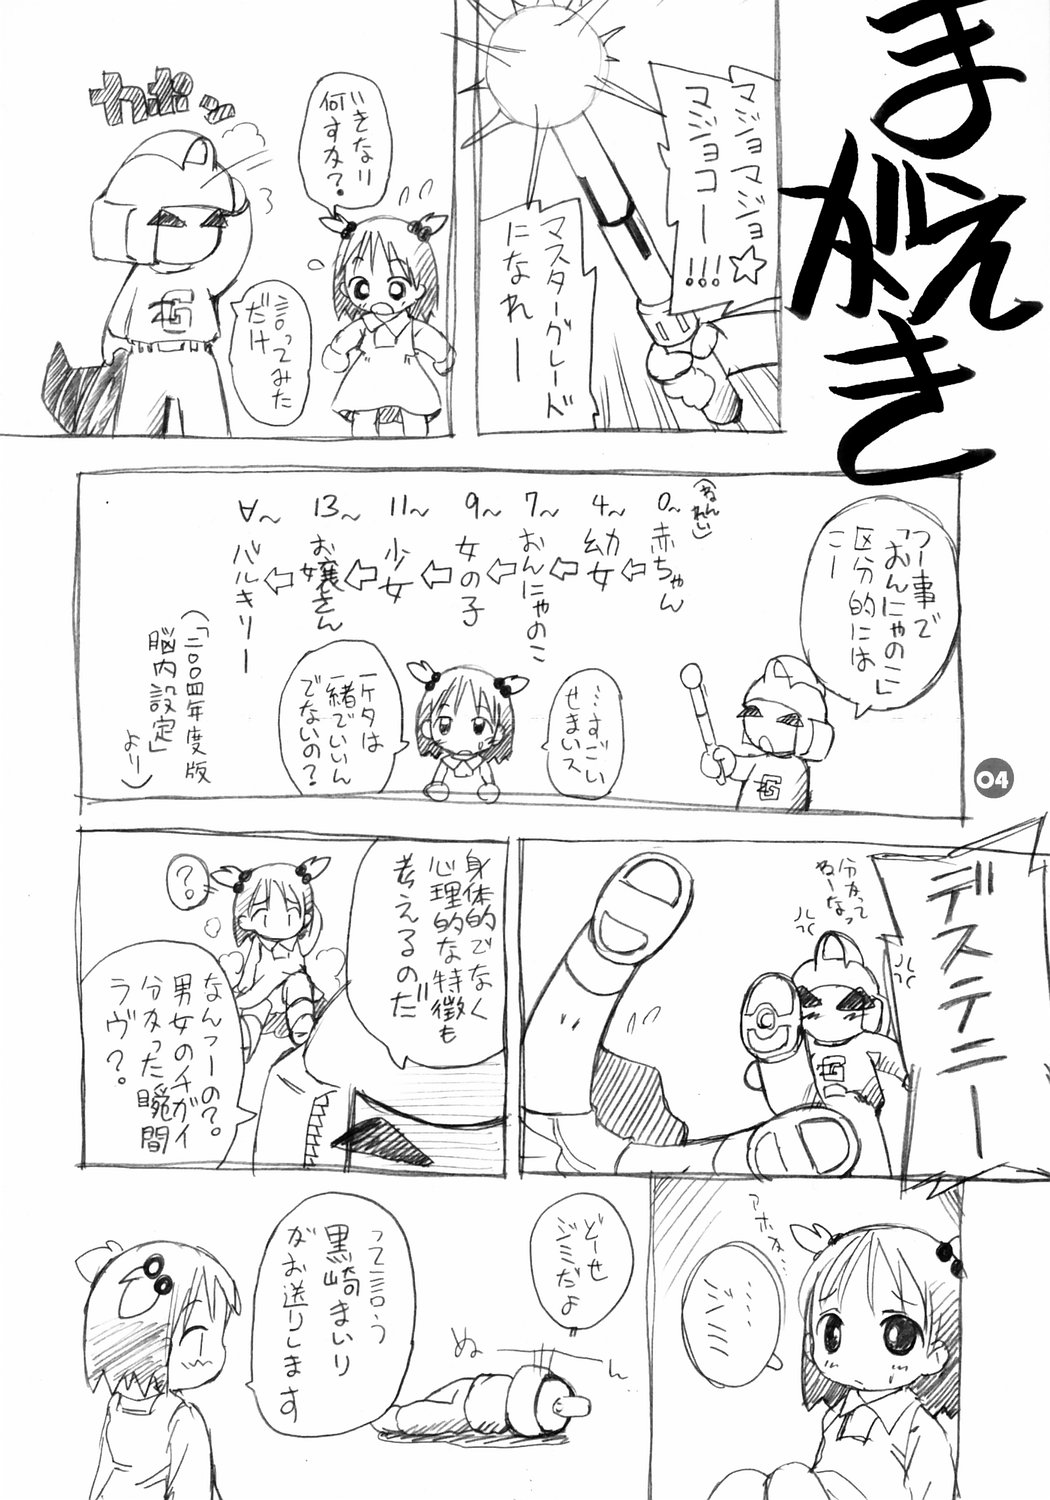 まえがき
マジョマジョ☆
マジョコー!!!
マスターグレード
になれー
いきなり
何すか?
カポッ
言ってみた
だけ
つー事で
「おんにゃのこ」
区分的には
こー
(ねんれい)
0~赤ちゃん
4~幼女
7~おんにゃのこ
9~女の子
11~少女
13~お嬢さん
∀~バルキリー
(「二〇〇四年度版
脳内設定」
より)
…すごい
せまいス
一ケタは
一緒でいいん
でないの?
04
デステニー
分かって
ねーなっ
身体的でなく
心理的な特徴も
考えるのだ!!
?
なんつーの?。
男女のチガイ
分かった瞬間
ラヴ?。
アホか…
……
ジミ
どーせ
ジミだよ
ぬーん
って言う
黒崎まいり
がお送りします